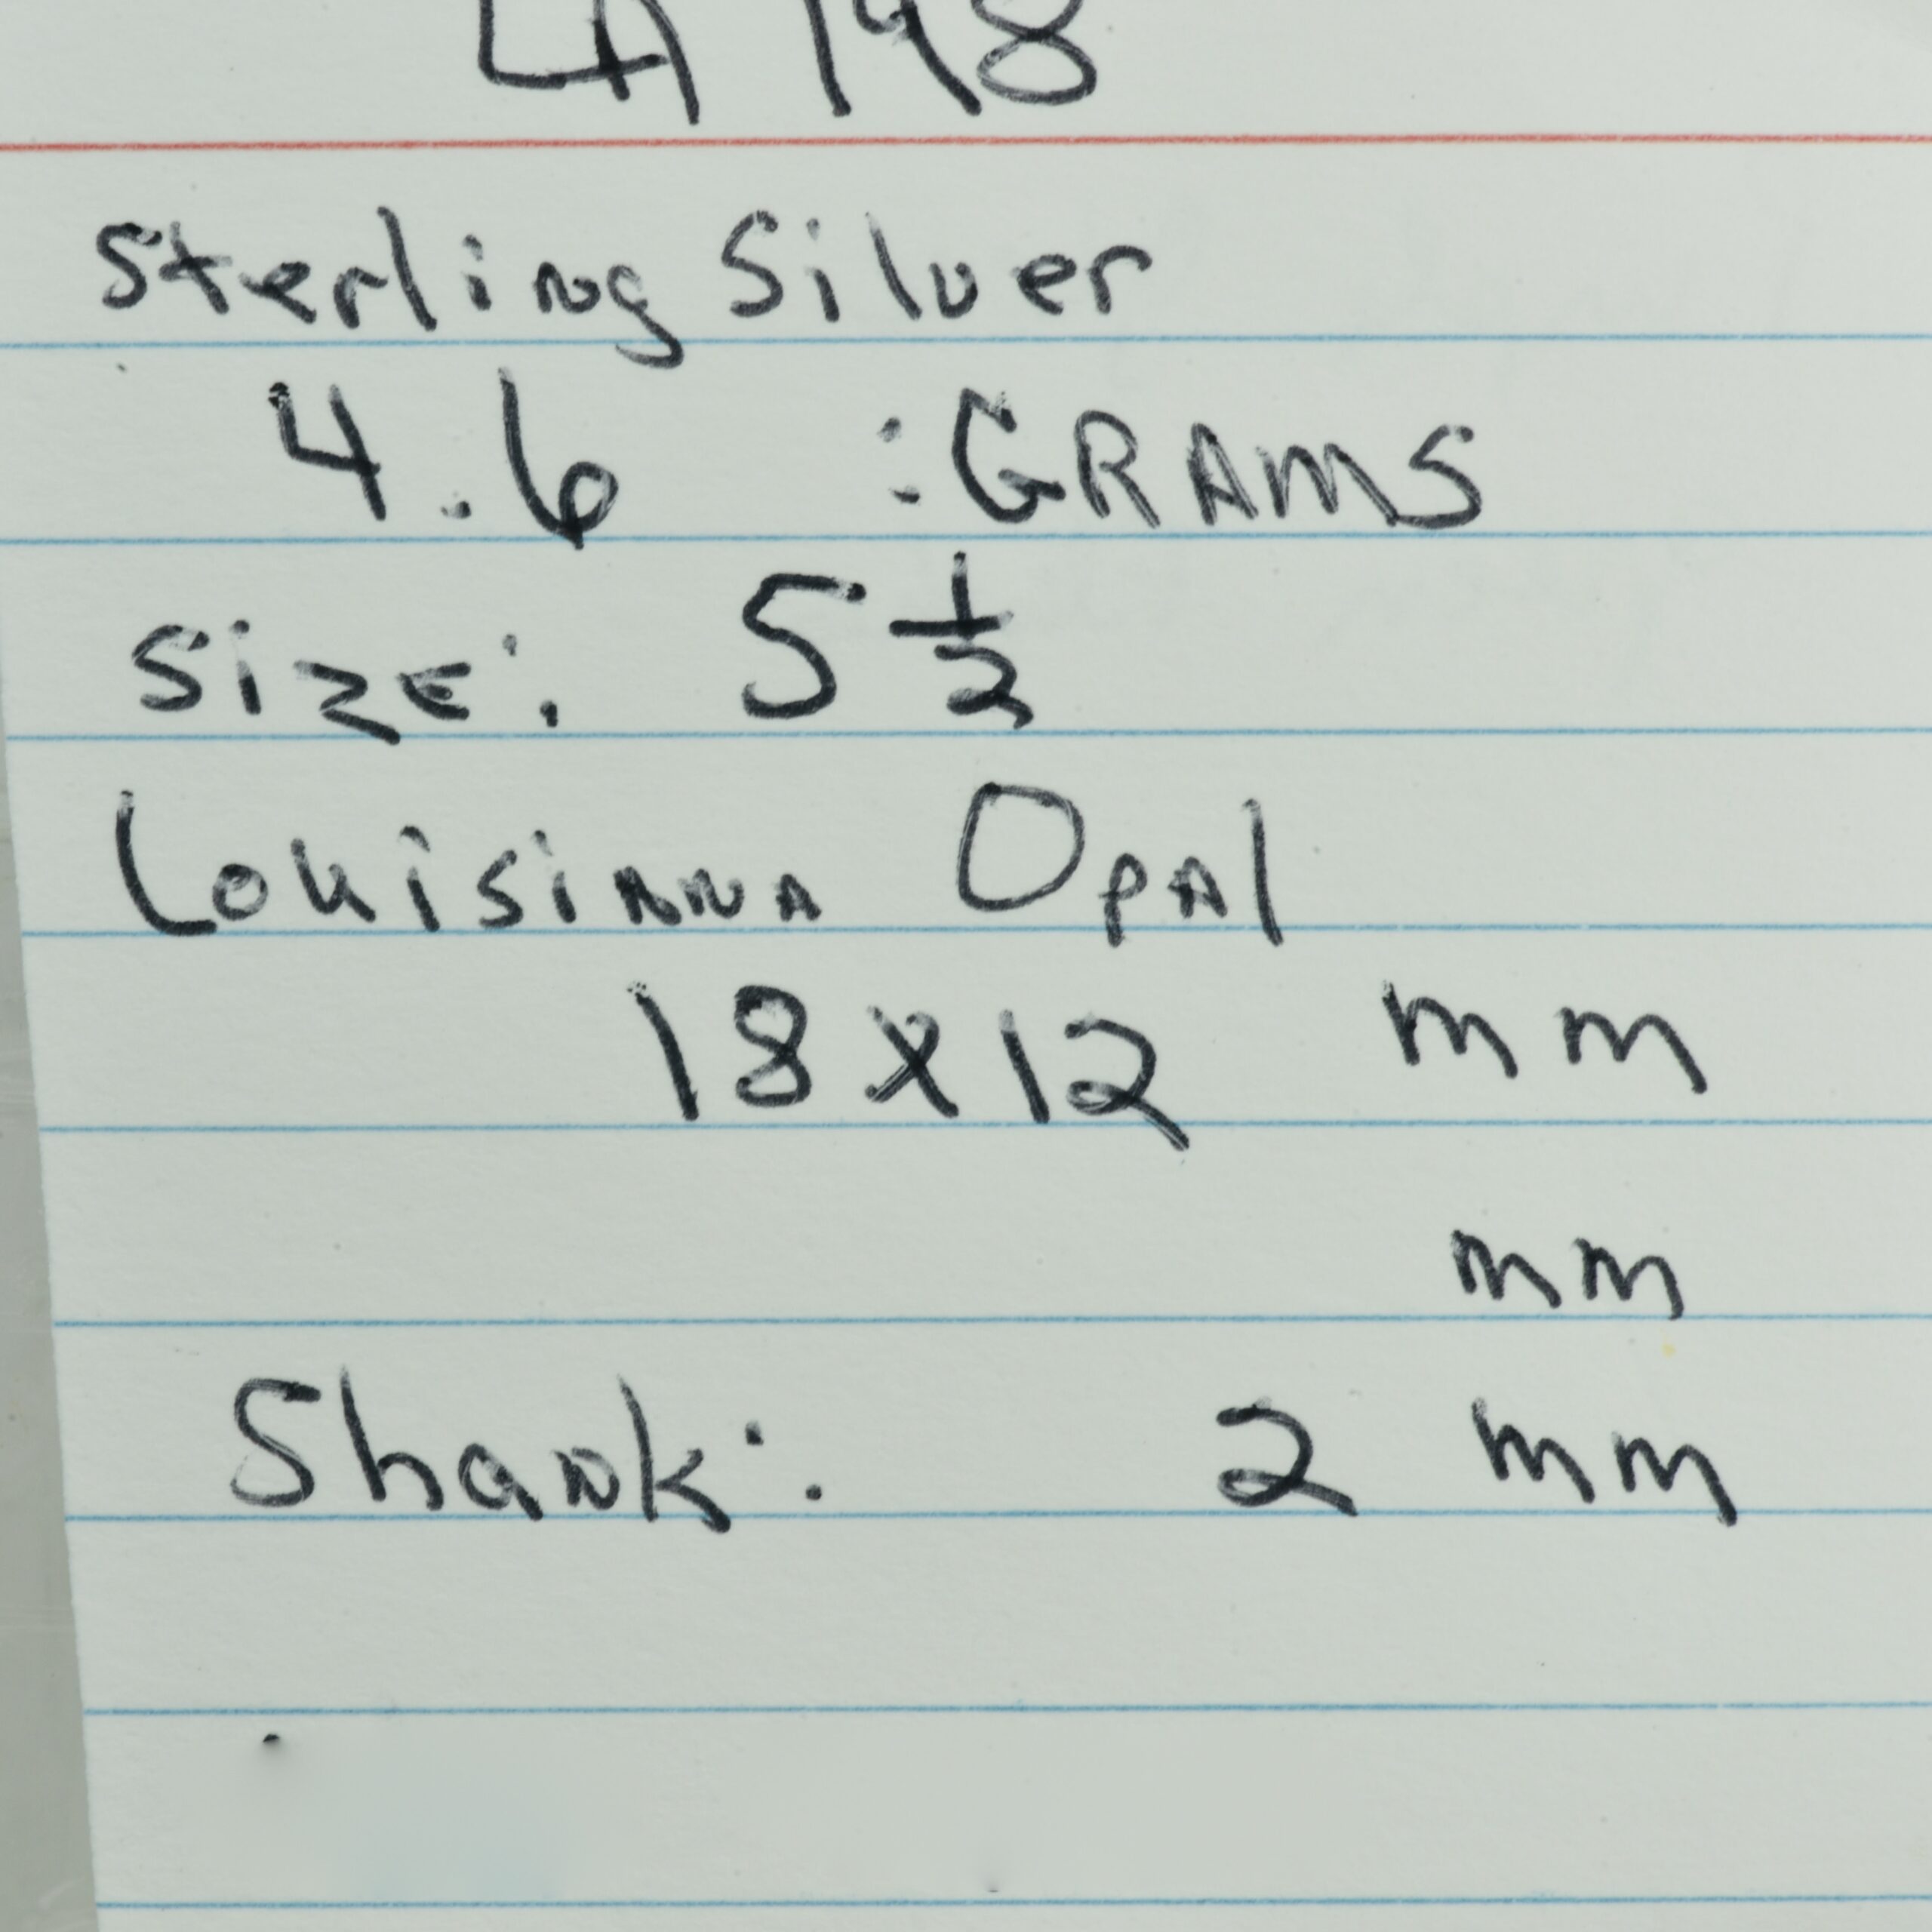 LA 198
Sterling Silver
4.6 :GRAMS
Size: 5 1/2
Louisianna Opal
18x12 mm
mm
Shank: 2 mm